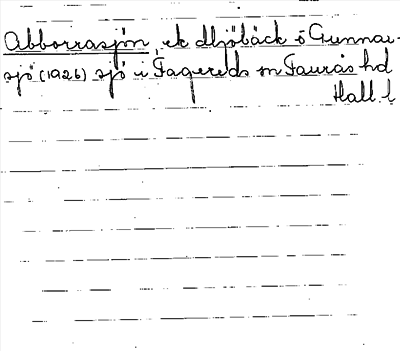 Abborrasjön, ek Mjöbäck o Gunnar-
sjö (1926) sjö i Fagereds sn Faurås hd
Hall. l